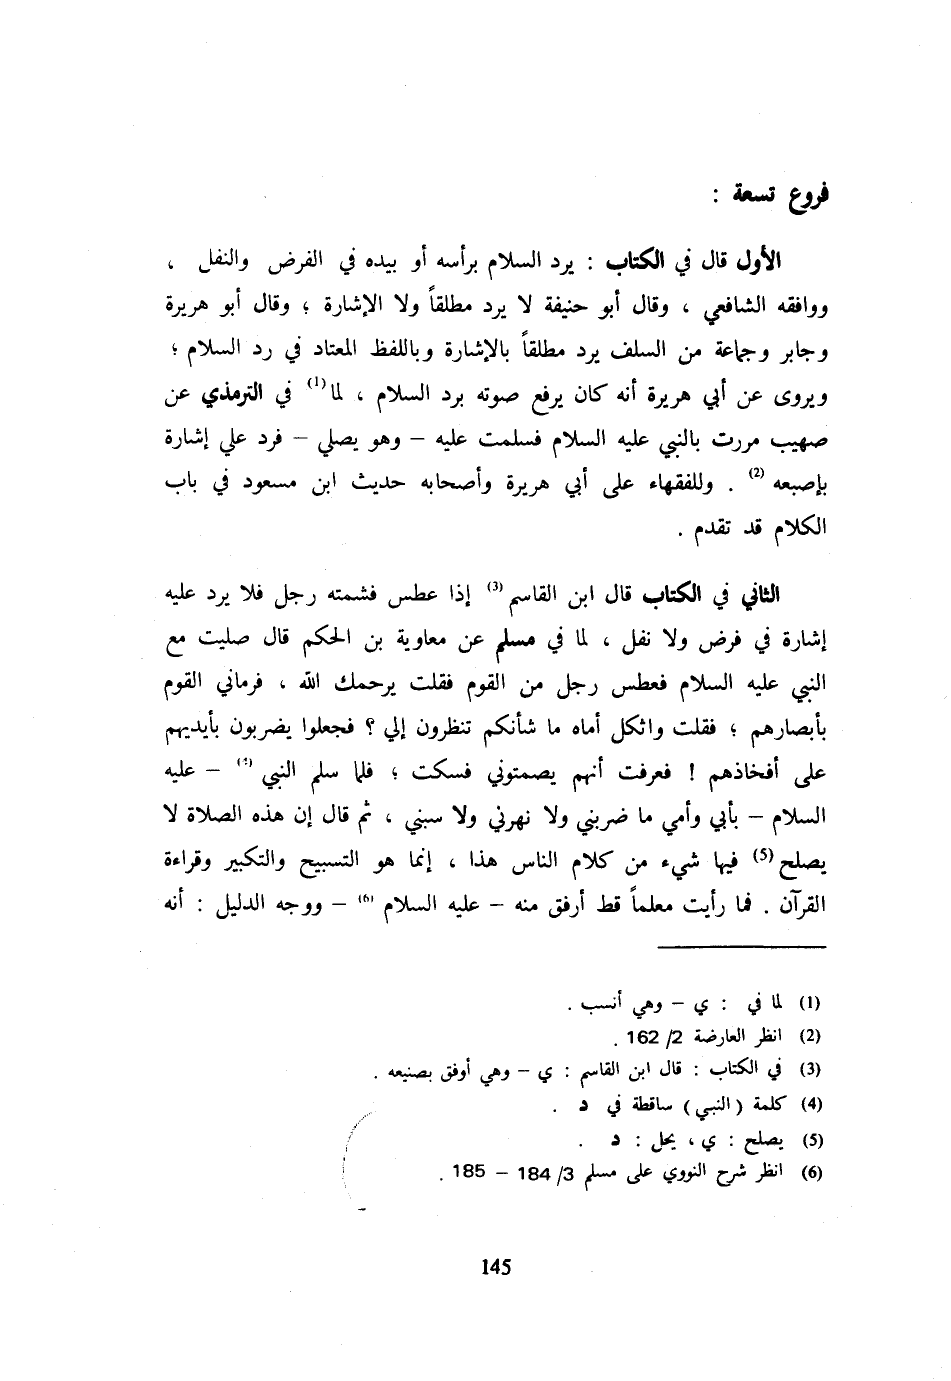 فروع تسعة :
الأول قال في الكتاب : يرد السلام برأسه أو بيده في الفرض والنفل ،
ووافقه الشافعي ، وقال أبو حنيفة لا يرد مطلقاً ولا الإشارة ؛ وقال أبو هريرة
وجابر وجماعة من السلف يرد مطلقاً بالإشارة وباللفظ المعتاد في رد السلام ؛
ويروى عن أبي هريرة أنه كان يرفع صوته برد السلام ، لما (1) في الترمذي عن
صهيب مررت بالنبي عليه السلام فسلمت عليه – وهو يصلي – فرد علي إشارة
بإصبعه (2) . وللفقهاء على أبي هريرة وأصحابه حديث ابن مسعود في باب
الكلام قد تقدم .
الثاني في الكتاب قال ابن القاسم (3) إذا عطس فشمته رجل فلا يرد عليه
إشارة في فرض ولا نفل ، لما في مسلم عن معاوية بن الحكم قال صليت مع
النبي عليه السلام فعطس رجل من القوم فقلت يرحمك الله ، فرماني القوم
بأبصارهم ؛ فقلت واثكل أماه ما شأنكم تنظرون إلي ؟ فجعلوا يضربون بأيديهم
على أفخاذهم ! فعرفت أنهم يصمتوني فسكت ؛ فلما سلم النبي (4) – عليه
السلام – بأبي وأمي ما ضربني ولا نهرني ولا سبني ، ثم قال إن هذه الصلاة لا
يصلح (5) فيها شيء من كلام الناس هذا ، إنما هو التسبيح والتكبير وقراءة
القرآن . فما رأيت معلماً قط أرفق منه – عليه السلام (6) – ووجه الدليل : أنه
(1) لما في : ي – وهي أنسب .
(2) انظر العارضة 2/ 162 .
(3) في الكتاب : قال ابن القاسم : ي – وهي أوفق بصنيعه .
(4) كلمة ( النبي ) ساقطة في د .
(5) يصلح : ي ، يحل : د .
(6) انظر شرح النووي على مسلم 3/ 184 – 185 .
145